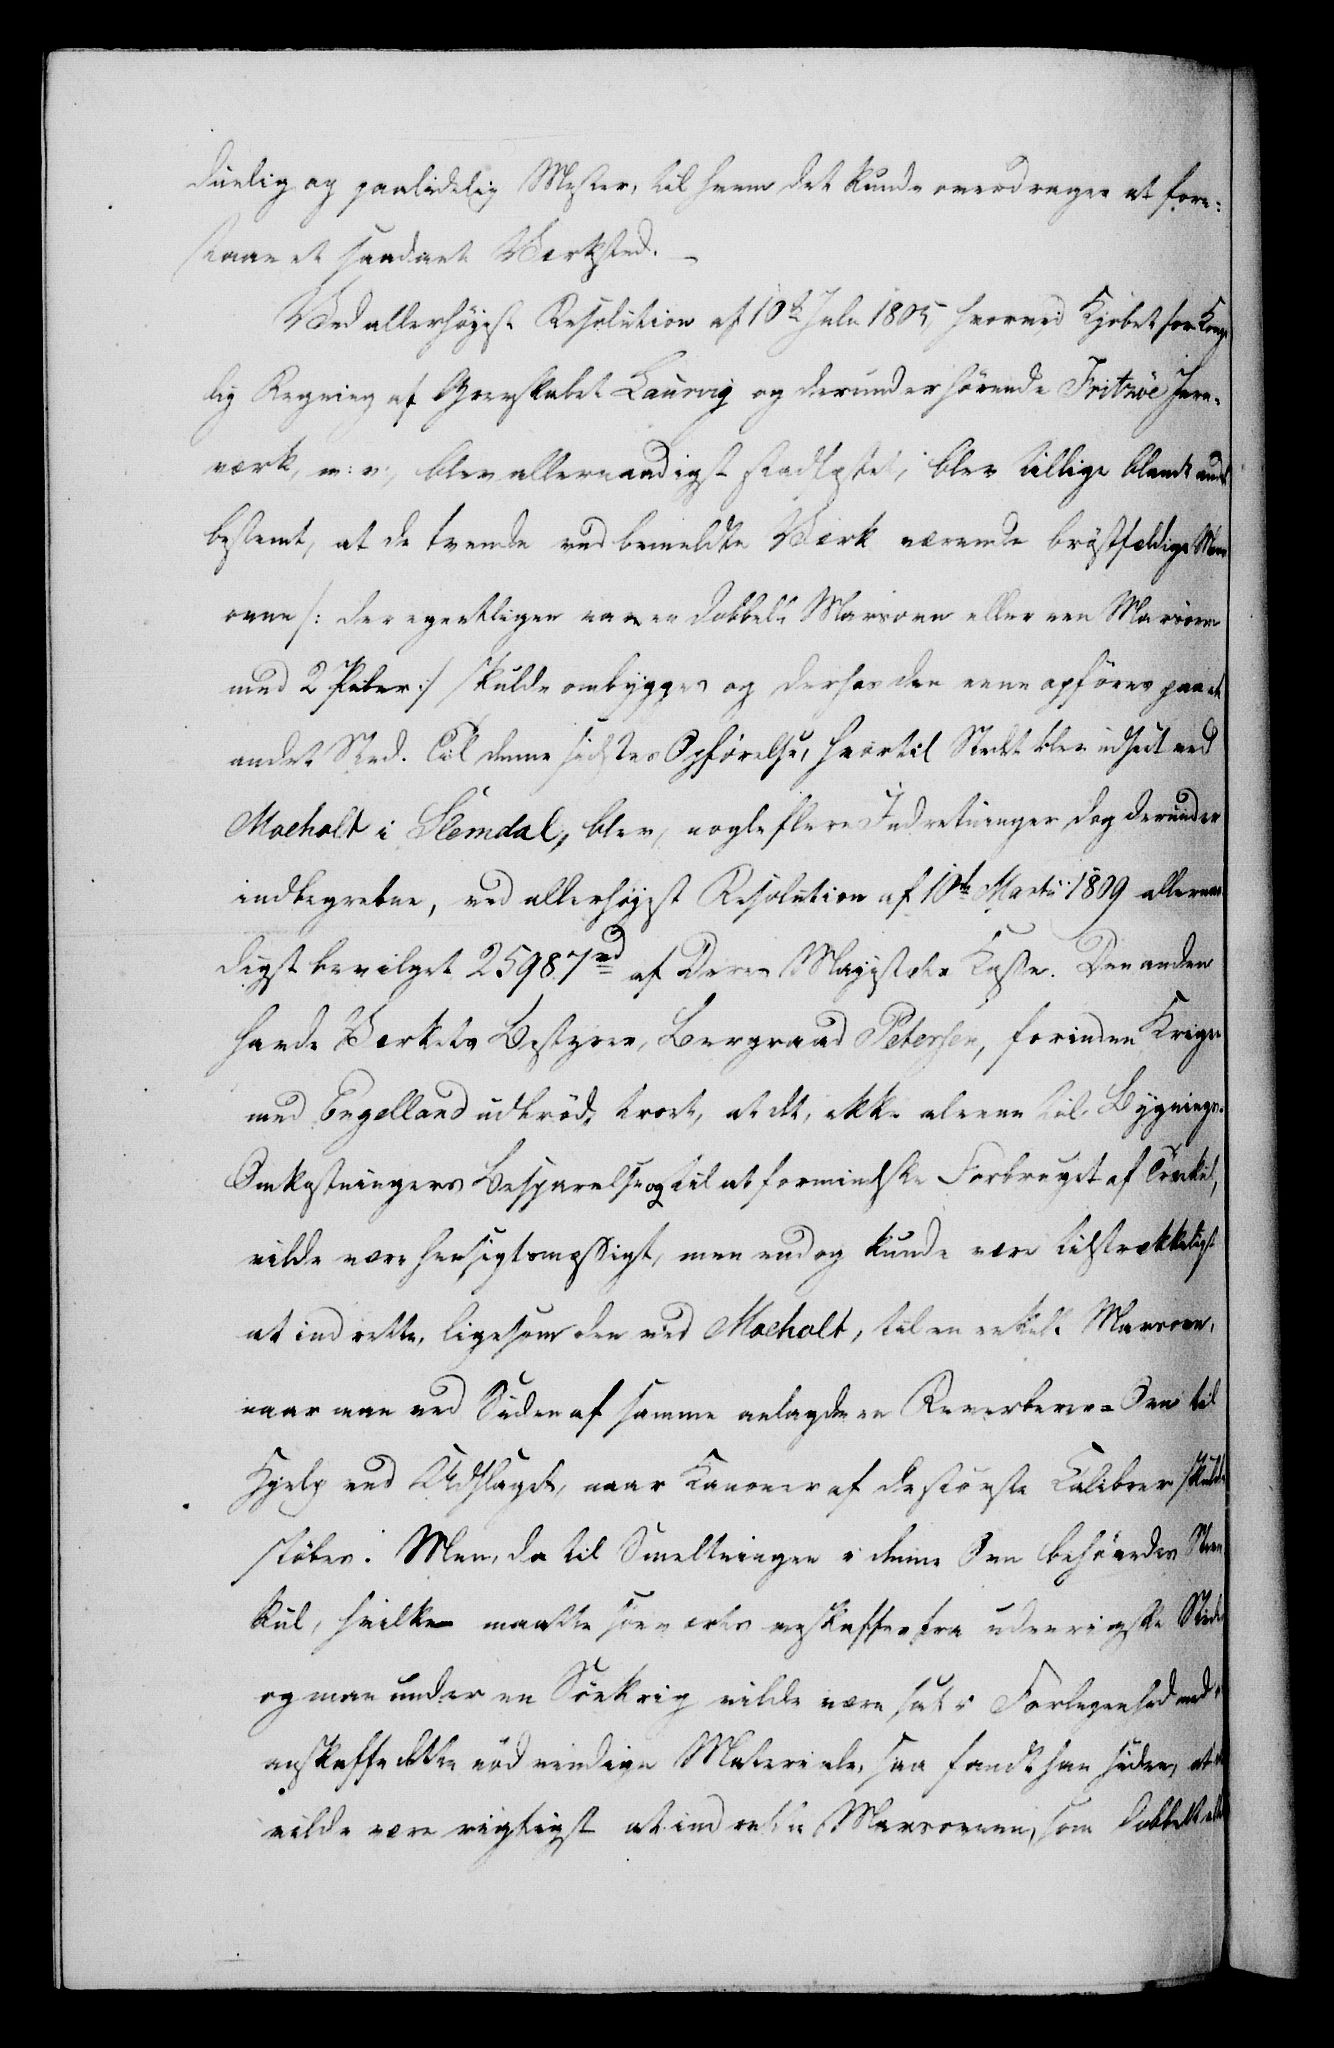 duelig og paalidelig Mester, til hvem det kunde overdrages at fore-
staae et saadant Værksted. —
Ved allerhøyest Resolution af 10de Julii 1805, hvorved Kjøbet for Konge
lig Regning af Grevskabet Laurvig og derunder hørende Fritzöe Jern-
værk, m: v:, blev allernaadigst stadfæstet, blev tillige blandt andet
bestemt, at de tvende ved bemeldte Værk værende brøstfældige Mas
ovne /: der egentligen var en dobbelt Masovn eller een Masovn
med 2 Piber :/ skulde ombygges og derhos den eene opføres paa et
andet Sted. Til denne sidstes Opførelse, hvortil Stedet blev udseet ved
Moeholt i Slemdal, blev, nogle flere Indretninger dog derunder
indbegrebne, ved allerhøyest Resolution af 10de Martii 1809 allernaa
digst bevilget 25987 rd af Deres Majestæts Kasse. Den anden
havde Værkets Bestyrer, Bergraad Petersen, forinden Krigen
med Engelland udbrød, troet, at det, ikke alleene til Bygnings-
Omkostningers Besparelse og til at formindske Forbruget af Trækul,
vilde være hensigtsmæssigt, men endog kunde være tilstrækkeligt
at indrette, ligesom den ved Moeholt, til en enkelt Masovn,
naar man ved Siden af samme anlagde en Reverbereer-Ovn til
Hjelp ved Udslaget, naar Kanoner af de største Calibrer skulde
støbes. Men, da til Smeltningen i denne Ovn behøvedes Steen
kul, hvilke maatte søeværts anskaffes fra udenrigske Steder
og man under en Søekrig vilde være sat i Forlegenhed med at
anskaffe dette nødvendige Materiale, saa fandt han siden, at det
vilde være rigtigst at indrette Masovnen, som dobbelt eller